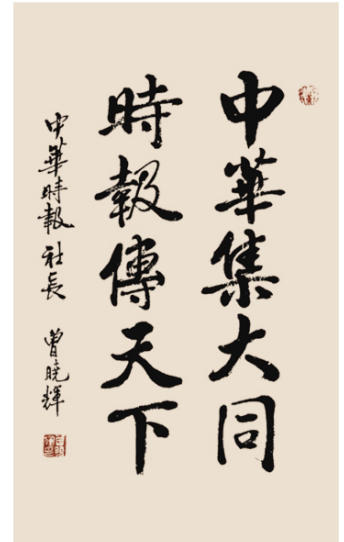 中華集大同
時報傳天下
中華時報社長 曾曉輝